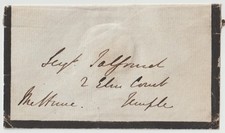 Serjt Talfourd
2 Elm Court
Temple